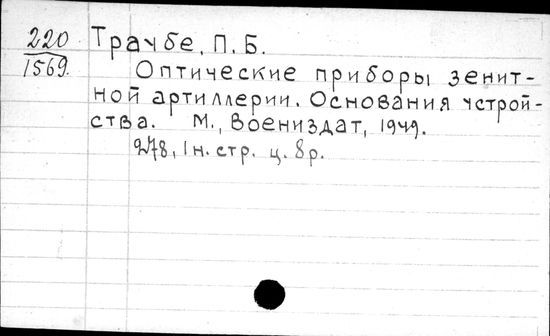 220 Траубе, П. Б.
1569. Оптические приборы зенит-
ной артиллерии. Основания устрой-
ства. М., Воениздат, 1949.
278, 1 н. стр. ц. 8 р.